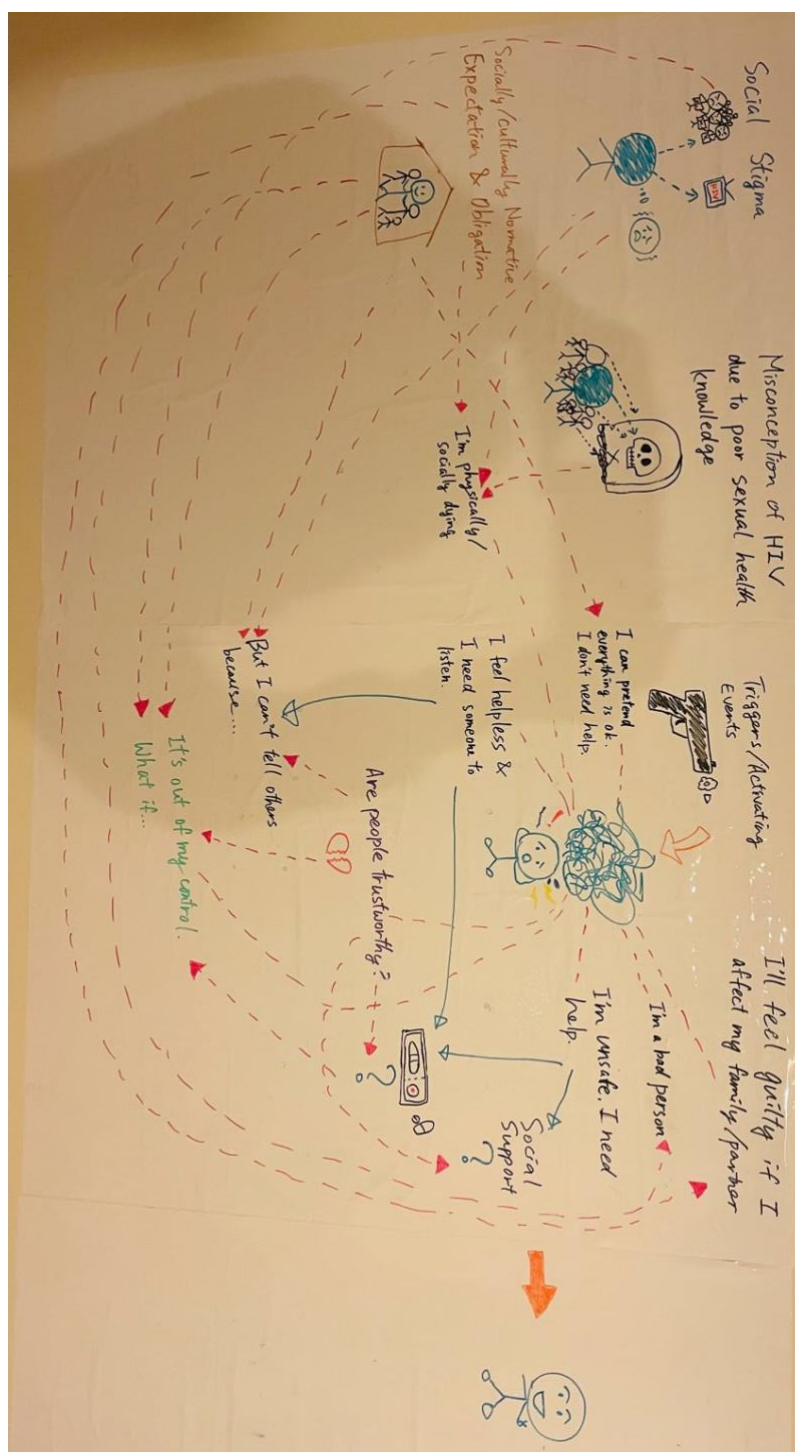 Social Stigma
HIV
Socially/culturally Normative
Expectation & Obligation
Misconception of HIV
due to poor sexual health
knowledge
I'm physically/
socially dying
Triggers/Activating
Events
I can pretend
everything is ok.
I don't need help.
I feel helpless &
I need someone to
listen.
But I can't tell others
because...
It's out of my control.
What if...
Are people trustworthy?
I'll feel guilty if I
affect my family/partner
I'm a bad person
I'm unsafe. I need
help.
?
Social
Support
?